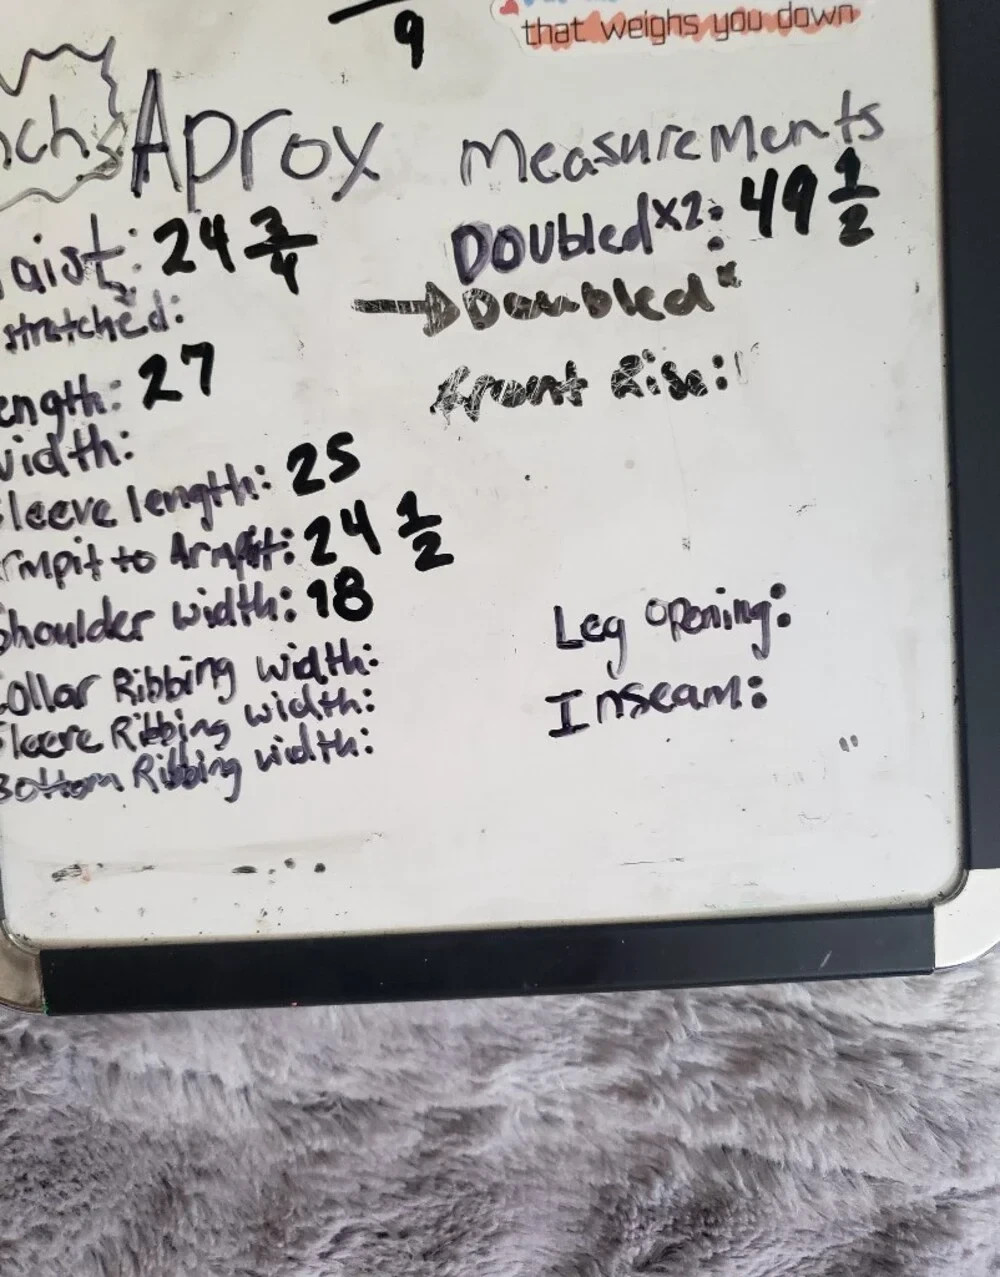 9
that weighs you down
nch Aprox Measurements
aist: 24 3/4 Doubled x2: 49 1/2
stretched: Doubled x
ength: 27 front Rise:
idth:
leeve length: 25
rmpit to Armpit: 24 1/2
Shoulder width: 18
Leg opening:
Collar Ribbing width:
Inseam:
Sleeve Ribbing width:
Bottom Ribbing width: